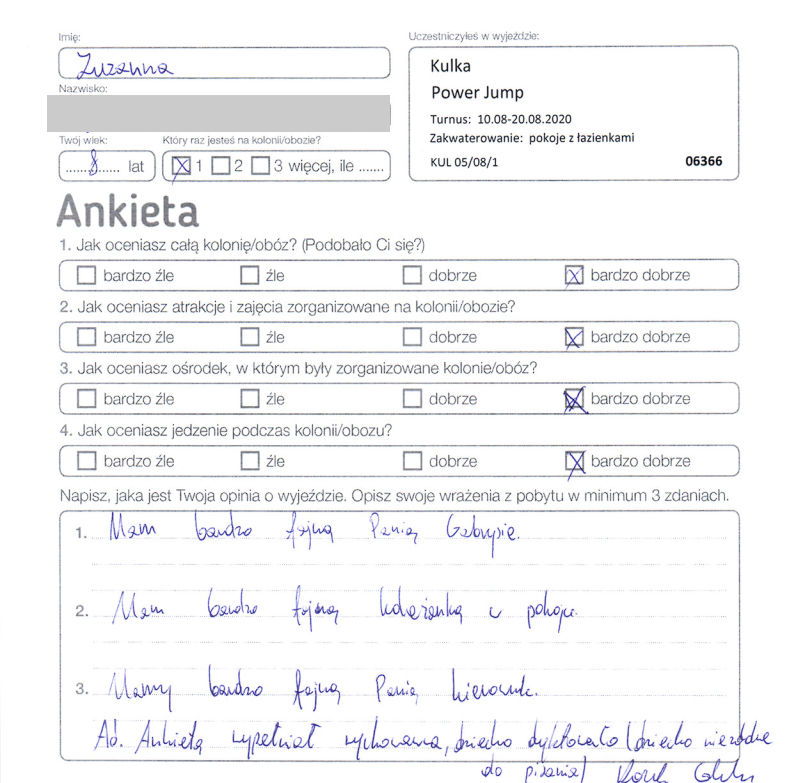 Imię:
Zuzanna
Nazwisko:
Twój wiek:
Który raz jesteś na kolonii/obozie?
......8...... lat
1 2 3 więcej, ile ......
Uczestniczyłeś w wyjeździe:
Kulka
Power Jump
Turnus: 10.08-20.08.2020
Zakwaterowanie: pokoje z łazienkami
KUL 05/08/1 06366
Ankieta
1. Jak oceniasz całą kolonię/obóz? (Podobało Ci się?)
bardzo źle źle dobrze bardzo dobrze
2. Jak oceniasz atrakcje i zajęcia zorganizowane na kolonii/obozie?
bardzo źle źle dobrze bardzo dobrze
3. Jak oceniasz ośrodek, w którym były zorganizowane kolonie/obóz?
bardzo źle źle dobrze bardzo dobrze
4. Jak oceniasz jedzenie podczas kolonii/obozu?
bardzo źle źle dobrze bardzo dobrze
Napisz, jaka jest Twoja opinia o wyjeździe. Opisz swoje wrażenia z pobytu w minimum 3 zdaniach.
1. Mam bardzo fajną Panią Gabrysię.
2. Mam bardzo fajną koleżankę w pokoju.
3. Mamy bardzo fajną Panią kierownik.
Ad. Ankietę wypełniał wychowawca, dziecko dyktowało (dziecko niezdolne
do pisania)